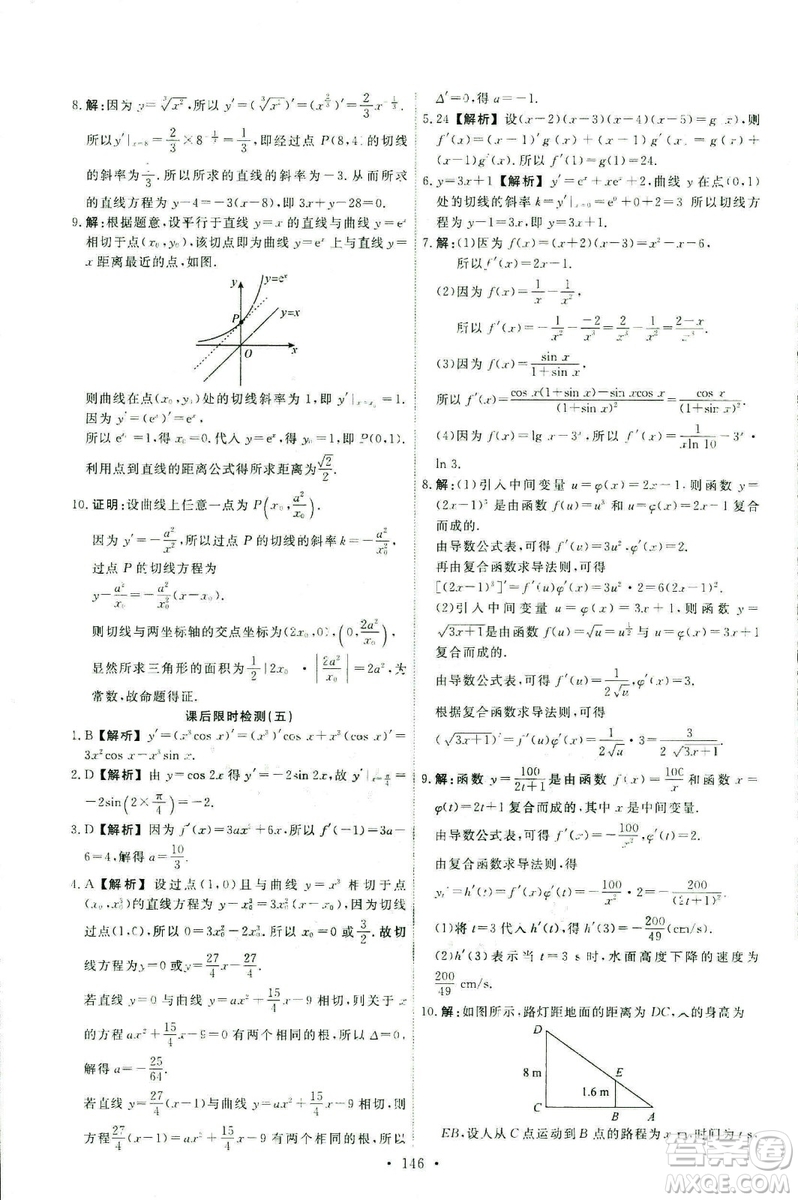 8. 解:因为 y=∛x², 所以 y′=(∛x²)′=(x^{2/3})′=2/3 x^{-1/3}.
所以 y′|ₓ₌₈=2/3×8^{-1/3}=1/3,即经过点 P(8,4)的切线
的斜率为1/3.所以所求的直线的斜率为-3.从而所求
的直线方程为 y-4=-3(x-8),即3x+y-28=0.
9. 解:根据题意,设平行于直线 y=x 的直线与曲线 y=eˣ
相切于点(x₀,y₀),该切点即为曲线 y=eˣ 与直线 y=
x 距离最近的点,如图.
y
y=eˣ
y=x
P
O
x
则曲线在点(x₀,y₀)处的切线斜率为1,即 y′|ₓ₌ₓ₀=1.
因为 y′=(eˣ)′=eˣ,
所以 e^{x₀}=1,得 x₀=0.代入 y=eˣ,得 y₀=1,即 P(0,1).
利用点到直线的距离公式得所求距离为√2/2.
10. 证明:设曲线上任意一点为 P(x₀,a²/x₀),
因为 y′=-a²/x²,所以过点 P 的切线的斜率 k=-a²/x₀²,
过点 P 的切线方程为
y-a²/x₀=-a²/x₀²(x-x₀).
则切线与两坐标轴的交点坐标为(2x₀,0),(0,2a²/x₀),
显然所求三角形的面积为1/2|2x₀·|2a²/x₀|=2a²,为
常数,故命题得证.
课后限时检测(五)
1. B【解析】y′=(x³cos x)′=(x³)′cos x+x³(cos x)′=
3x²cos x-x³sin x.
2. D【解析】由 y=cos 2x 得 y′=-2sin 2x,故 y′|ₓ₌π/4=
-2sin(2×π/4)=-2.
3. D【解析】因为 f′(x)=3ax²+6x,所以 f′(-1)=3a-
6=4,解得 a=10/3.
4. A【解析】设过点(1,0)且与曲线 y=x³ 相切于点
(x₀,x₀³)的直线方程为 y-x₀³=3x₀²(x-x₀),又直线
过点(1,0),所以 0-x₀³=3x₀²(1-x₀),x₀=0 或3/2.故切
线方程为 y=0 或 y=27/4 x-27/4.
若直线 y=0 与曲线 y=ax²+15/4 x-9 相切,则关于 x
的方程 ax²+15/4 x-9=0 有两个相同的根,所以 Δ=0,
解得 a=-25/64.
若直线 y=27/4(x-1)与曲线 y=ax²+15/4 x-9 相切,则
方程27/4(x-1)=ax²+15/4 x-9 有两个相同的根,所以
Δ′=0,得 a=-1.
5. 24【解析】设(x-2)(x-3)(x-4)(x-5)=g(x),则
f′(x)=[(x-1)g(x)]′=g(x)+(x-1)g′(x)=g(x)+
(x-1)g′(x).所以 f′(1)=g(1)=24.
6. y=3x+1【解析】y′=eˣ+x·eˣ+2,曲线 y 在点(0,1)
处的切线的斜率 k=y′|ₓ₌₀=e⁰+0+2=3,所以切线方
程为 y-1=3x,即 y=3x+1.
7. 解:(1)因为 f(x)=(x+2)(x-3)=x²-x-6,
所以 f′(x)=2x-1.
(2)因为 f(x)=1/x-1/x²,
所以 f′(x)=-1/x²-(-2/x³)=-1/x²+2/x³.
(3)因为 f(x)=sin x/(1+sin x),
所以 f′(x)=[cos x(1+sin x)-sin xcos x]/(1+sin x)²=cos x/(1+sin x)².
(4)因为 f(x)=lg x-3ˣ,所以 f′(x)=1/(xln 10)-3ˣ·
ln 3.
8. 解:(1)引入中间变量 u=φ(x)=2x-1,则函数 y=
(2x-1)³ 是由函数 f(u)=u³ 与 u=φ(x)=2x-1 复合
而成的.
由导数公式表,可得 f′(u)=3u²,φ′(x)=2.
再由复合函数求导法则,可得
[(2x-1)³]′=f′(u)φ′(x)=3u²·2=6(2x-1)².
(2)引入中间变量 u=φ(x)=3x+1,则函数 y=
√(3x+1)是由函数 f(u)=√u=u^{1/2} 与 u=φ(x)=3x+1
复合而成的.
由导数公式表,可得 f′(u)=1/(2√u),φ′(x)=3.
由复合函数求导法则,可得
(√(3x+1))′=f′(u)φ′(x)=1/(2√u)·3=3/(2√(3x+1)).
9. 解:函数 y=100/(2t+1)是由函数 f(x)=100/x 和函数 x=
φ(t)=2t+1 复合而成的,其中 x 是中间变量.
由导数公式表,可得 f′(x)=-100/x²,φ′(t)=2.
由复合函数求导法则,可得
yₜ′=h′(t)=f′(x)φ′(t)=-100/x²·2=-200/(2t+1)².
(1)将 t=3 代入 h′(t),得 h′(3)=-200/49(cm/s).
(2)h′(3)表示当 t=3 时,水面高度下降的速度为
200/49 cm/s.
10. 解:如图所示,路灯距地面的距离为 DC,人的身高为
D
E
8 m
1.6 m
C
B
A
EB,设人从 C 点运动到 B 点的路程为 x m,时间为 t s,
• 146 •
答案圈
MXQE.COM